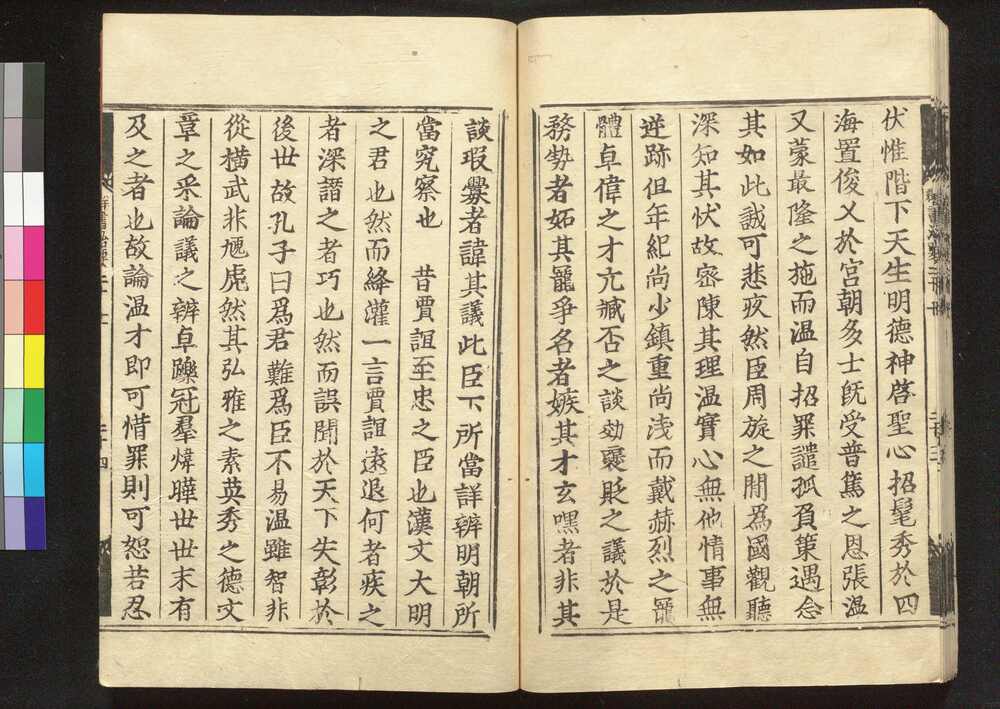 伏惟陛下天生明德神啓聖心招髦秀於四
海置俊乂於宮朝多士旣受普篤之恩張温
又蒙最隆之施而温自招罪譴孤負榮遇念
其如此誠可悲疚然臣周旋之間爲國觀聽
深知其狀故密陳其理温實心無他情事無
逆跡但年紀尚少鎮重尚淺而戴赫烈之寵
體卓偉之才亢臧否之談効襃貶之議於是
務勢者妬其寵爭名者嫉其才玄嘿者非其
談瑕舋者諱其議此臣下所當詳辨明朝所
當究察也 昔賈誼至忠之臣也漢文大明
之君也然而絳灌一言賈誼遠退何者疾之
者深譖之者巧也然而誤聞於天下失彰於
後世故孔子曰爲君難爲臣不易温雖智非
從横武非虓虎然其弘雅之素英秀之德文
章之采論議之辨卓躒冠羣煒曄世世未有
及之者也故論温才即可惜罪則可恕若忍
群書治要二十七
二十四